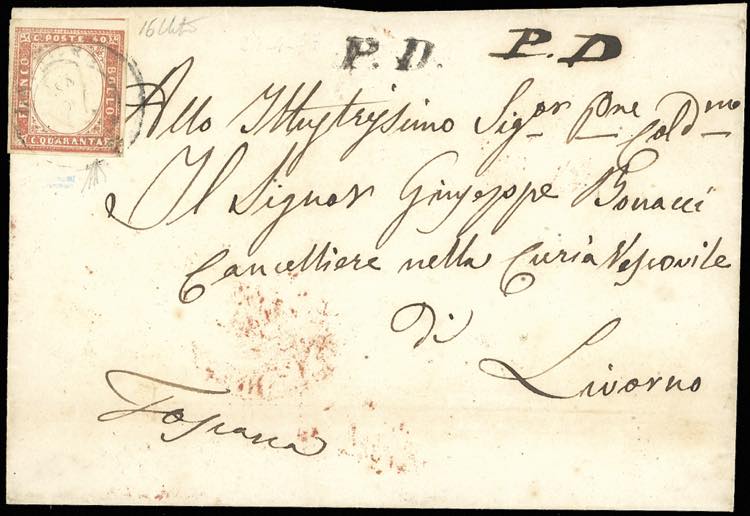 C. POSTE 40
FRANCO
BOLLO
C. QUARANTA
P. D.
P. D
Allo Illustrissimo Sig.or P.ne Cold.mo
Il Signor Giuseppe Bonacci
Cancelliere nella Curia Vescovile
di
Livorno
Toscana